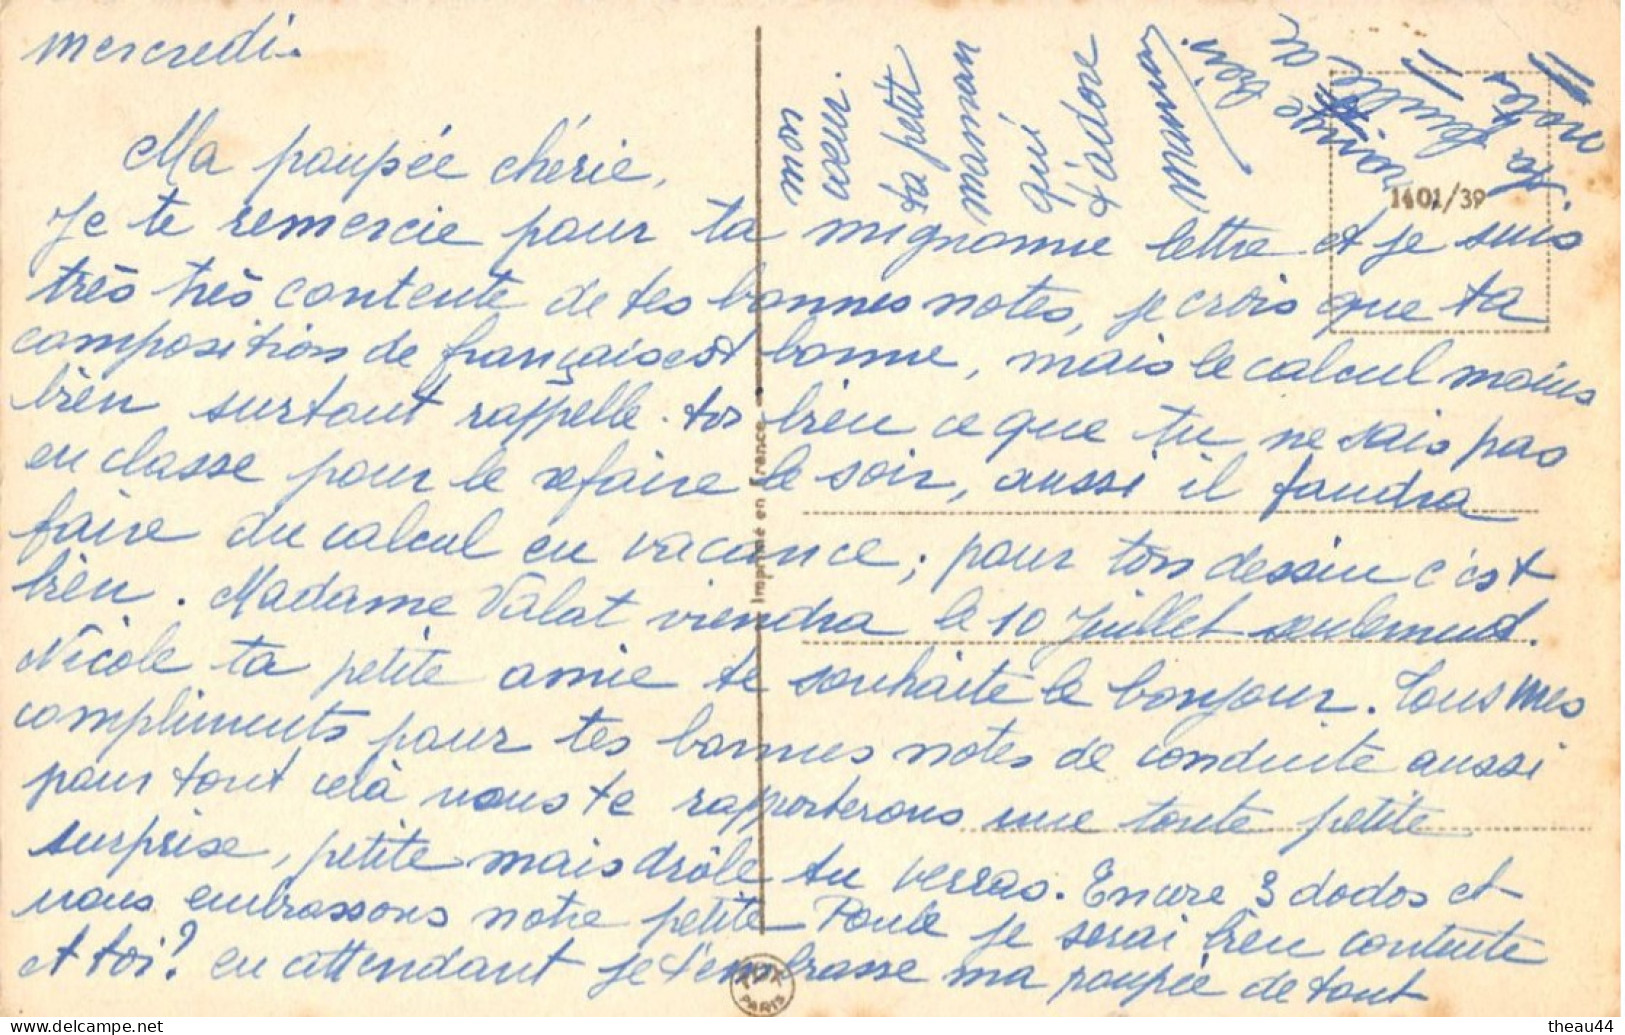 mercredi.
Ma poupée chérie,
Je te remercie pour ta mignonne lettre et je suis
très très contente de tes bonnes notes, je crois que ta
composition de français est bonne, mais le calcul moins
bien surtout rappelle-toi bien ce que tu ne sais pas
en classe pour le refaire le soir, aussi il faudra
faire du calcul en vacance; pour ton dessin c'est
bien. Madame Valat viendra le 10 Juillet seulement.
Nicole ta petite amie te souhaite le bonjour. Tous mes
compliments pour tes bonnes notes de conduite aussi
pour tout celà nous te rapporterons une toute petite
surprise, petite mais drôle tu verras. Encore 3 dodos et
nous embrassons notre petite Poule je serai bien contente
et toi? en attendant je t'embrasse ma poupée de tout
mon
coeur.
ta petit
maman
qui
t'adore
maman
1401/39
Imprimé en France
PARIS
theau44